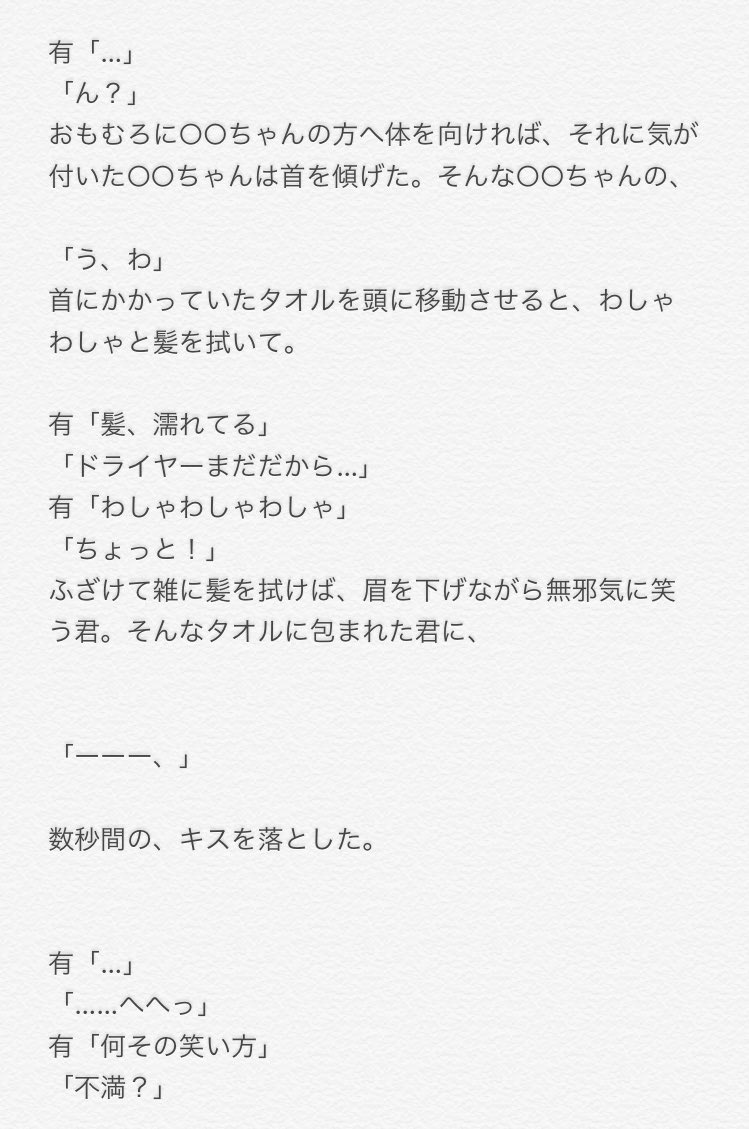 有「...」
「ん？」
おもむろに〇〇ちゃんの方へ体を向ければ、それに気が
付いた〇〇ちゃんは首を傾げた。そんな〇〇ちゃんの、
「う、わ」
首にかかっていたタオルを頭に移動させると、わしゃ
わしゃと髪を拭いて。
有「髪、濡れてる」
「ドライヤーまだだから...」
有「わしゃわしゃわしゃ」
「ちょっと！」
ふざけて雑に髪を拭けば、眉を下げながら無邪気に笑
う君。そんなタオルに包まれた君に、
「ーーー、」
数秒間の、キスを落とした。
有「...」
「......へへっ」
有「何その笑い方」
「不満？」